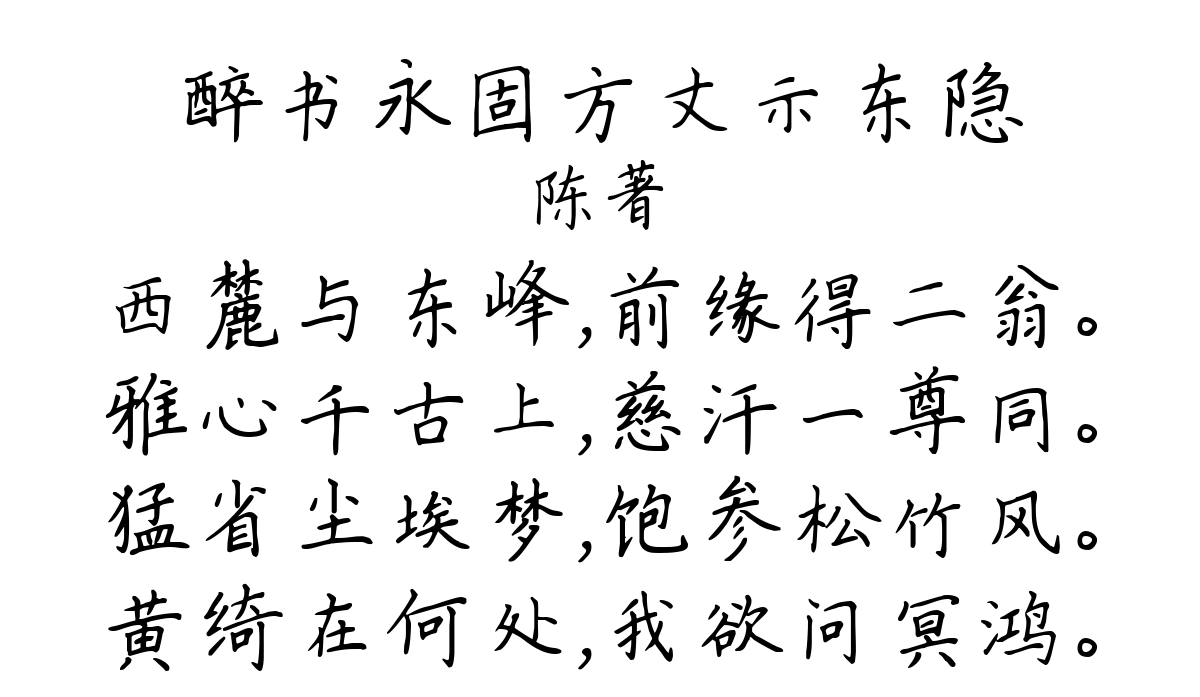 醉书永固方丈示东隐
陈著
西麓与东峰,前缘得二翁。
雅心千古上,慈汗一尊同。
猛省尘埃梦,饱参松竹风。
黄绮在何处,我欲问冥鸿。